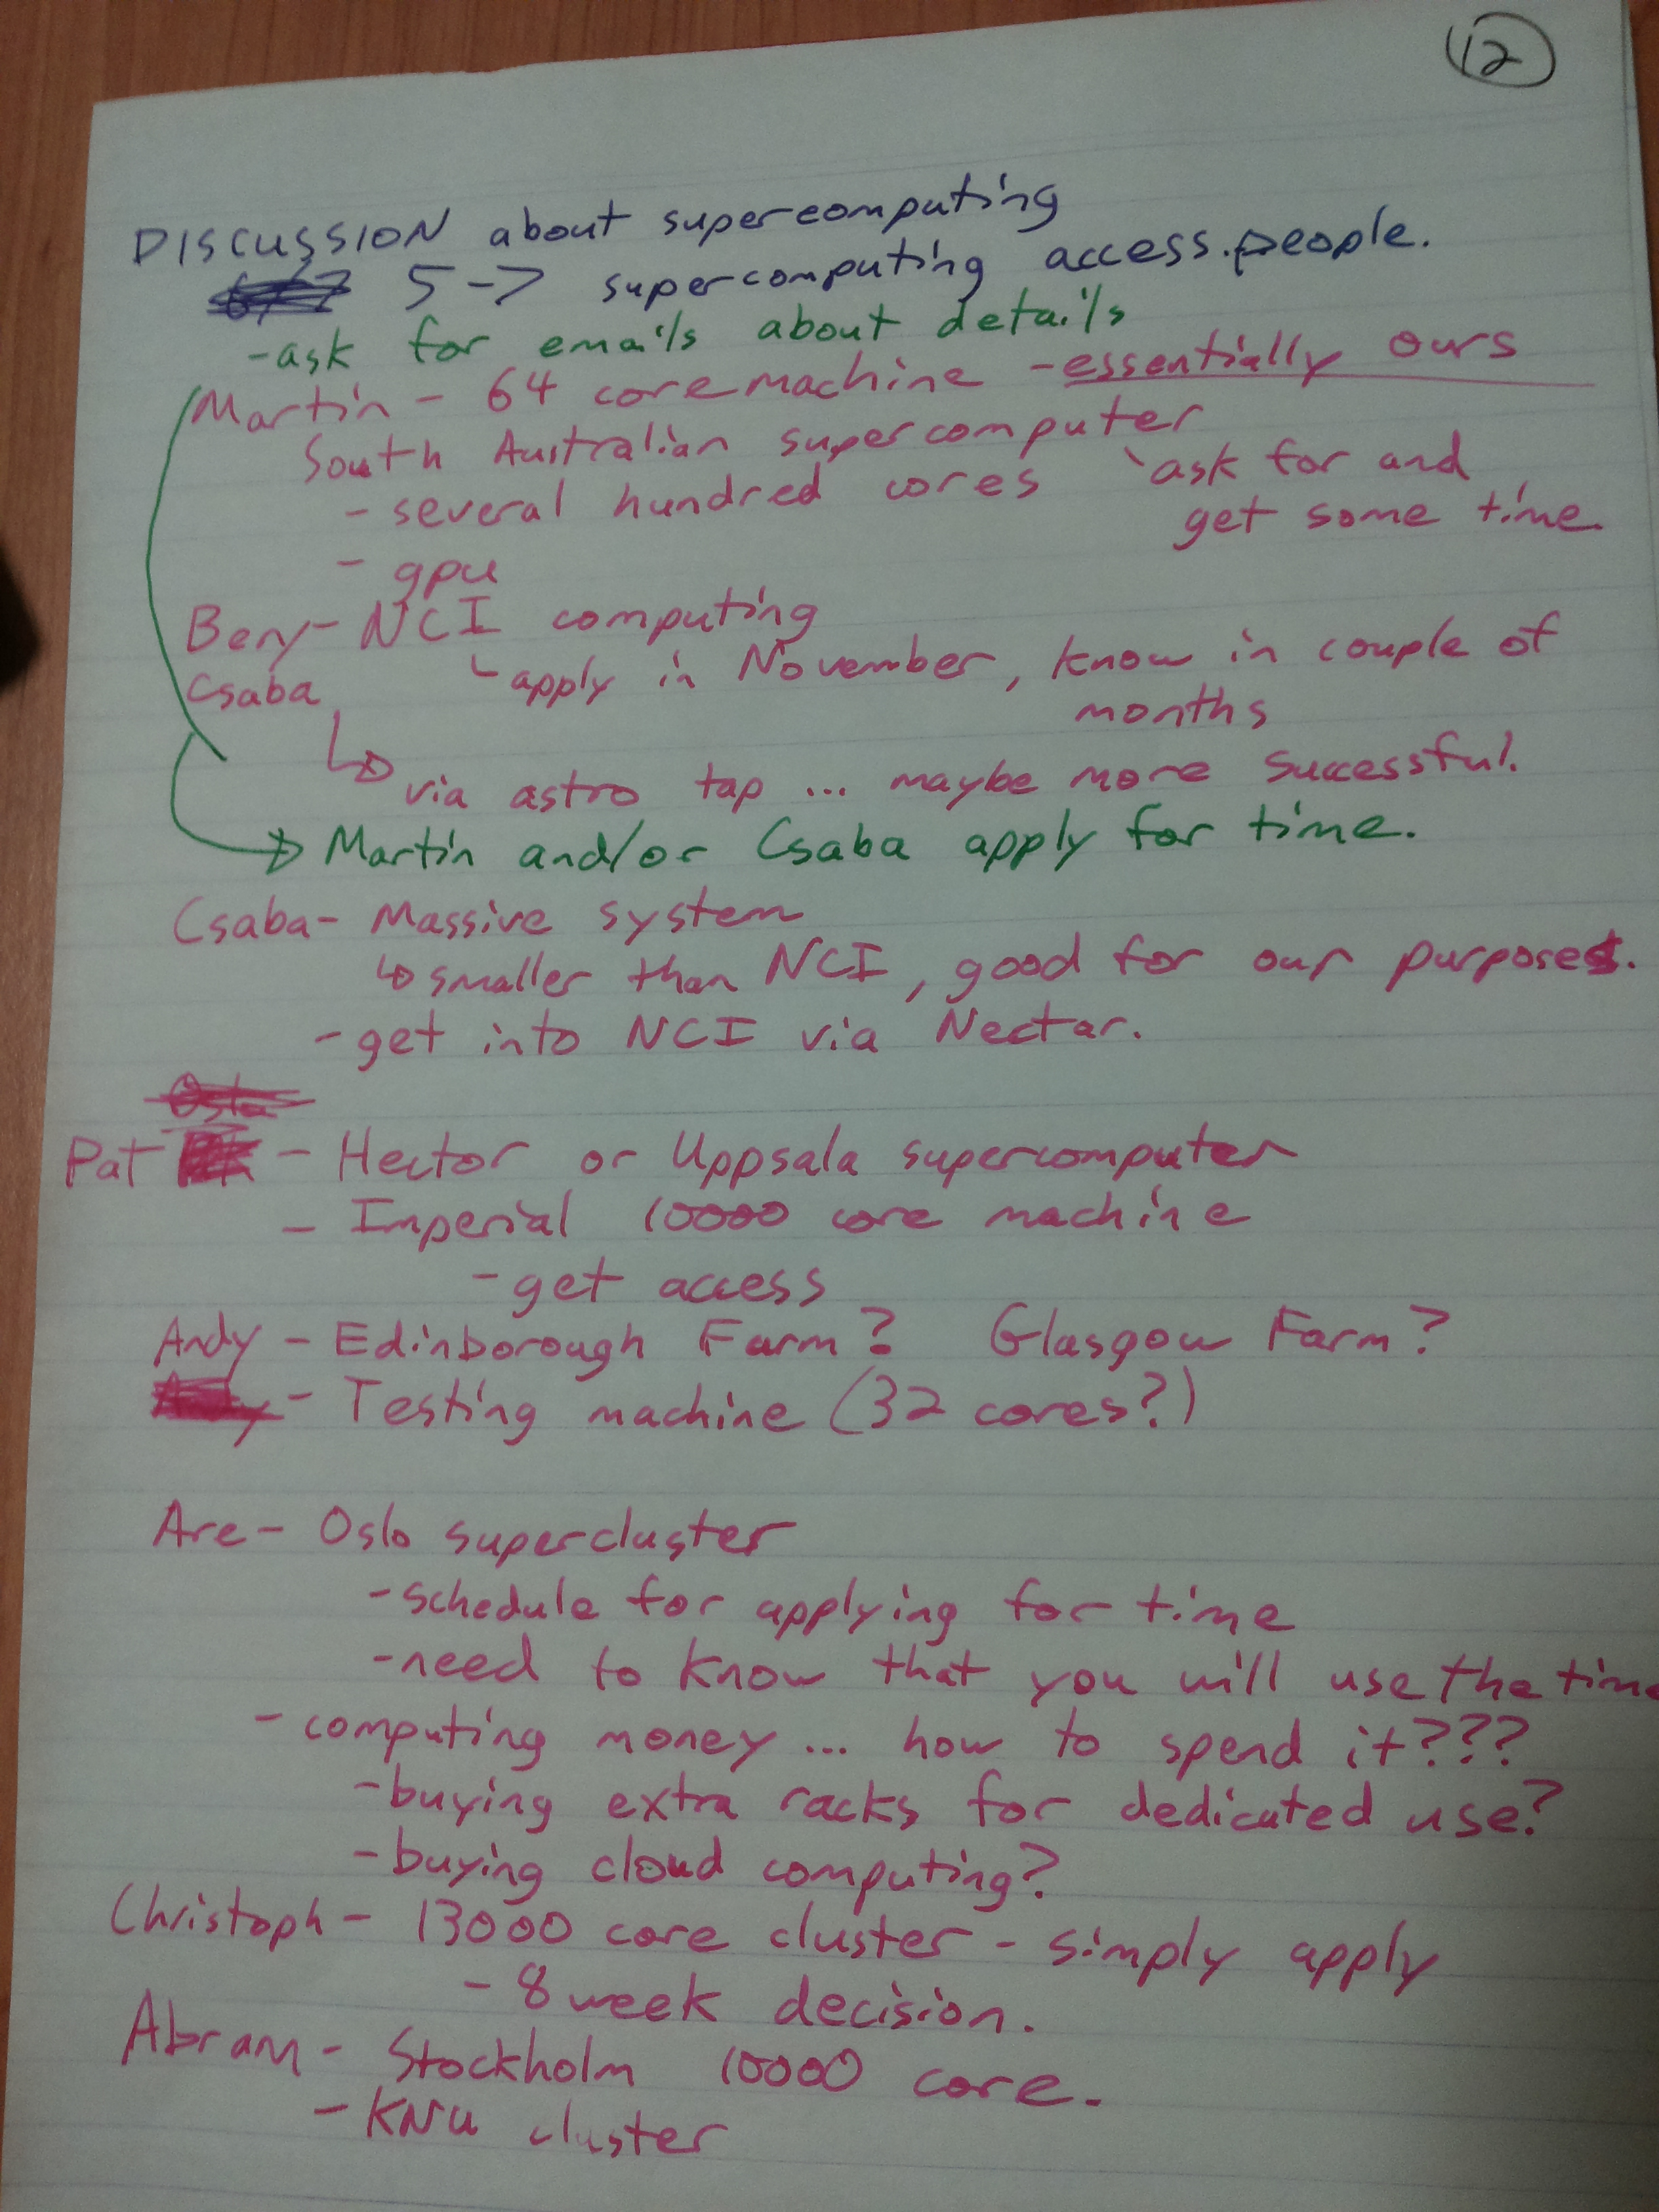 12
DISCUSSION about supercomputing
5 -> supercomputing access people.
-ask for emails about details
Martin - 64 core machine - essentially ours
South Australian supercomputer
- several hundred cores
ask for and
get some time.
- gpu
Ben - NCI computing
apply in November, know in couple of
months
Csaba
via astro tap ... maybe more successful.
Martin and/or Csaba apply for time.
Csaba - Massive system
smaller than NCI, good for our purposes.
- get into NCI via Nectar.
Pat - Hector or Uppsala supercomputer
- Imperial 10000 core machine
- get access
Andy - Edinborough Farm? Glasgow Farm?
- Testing machine (32 cores?)
Are - Oslo supercluster
- schedule for applying for time
- need to know that you will use the time
- computing money ... how to spend it???
- buying extra racks for dedicated use?
- buying cloud computing?
Christoph - 13000 core cluster - simply apply
- 8 week decision.
Abram - Stockholm 10000 core.
- KNU cluster